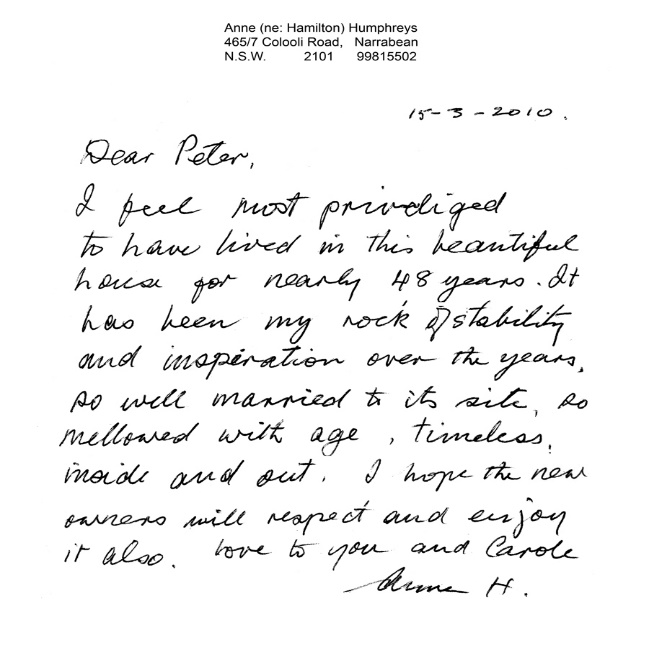 Anne (ne: Hamilton) Humphreys
465/7 Colooli Road, Narrabean
N.S.W. 2101 99815502
15-3-2010.
Dear Peter,
I feel most priviliged
to have lived in this beautiful
house for nearly 48 years. It
has been my rock of stability
and inspiration over the years,
so well married to its site, so
mellowed with age, timeless,
inside and out. I hope the new
owners will respect and enjoy
it also. Love to you and Carole
Anne H.